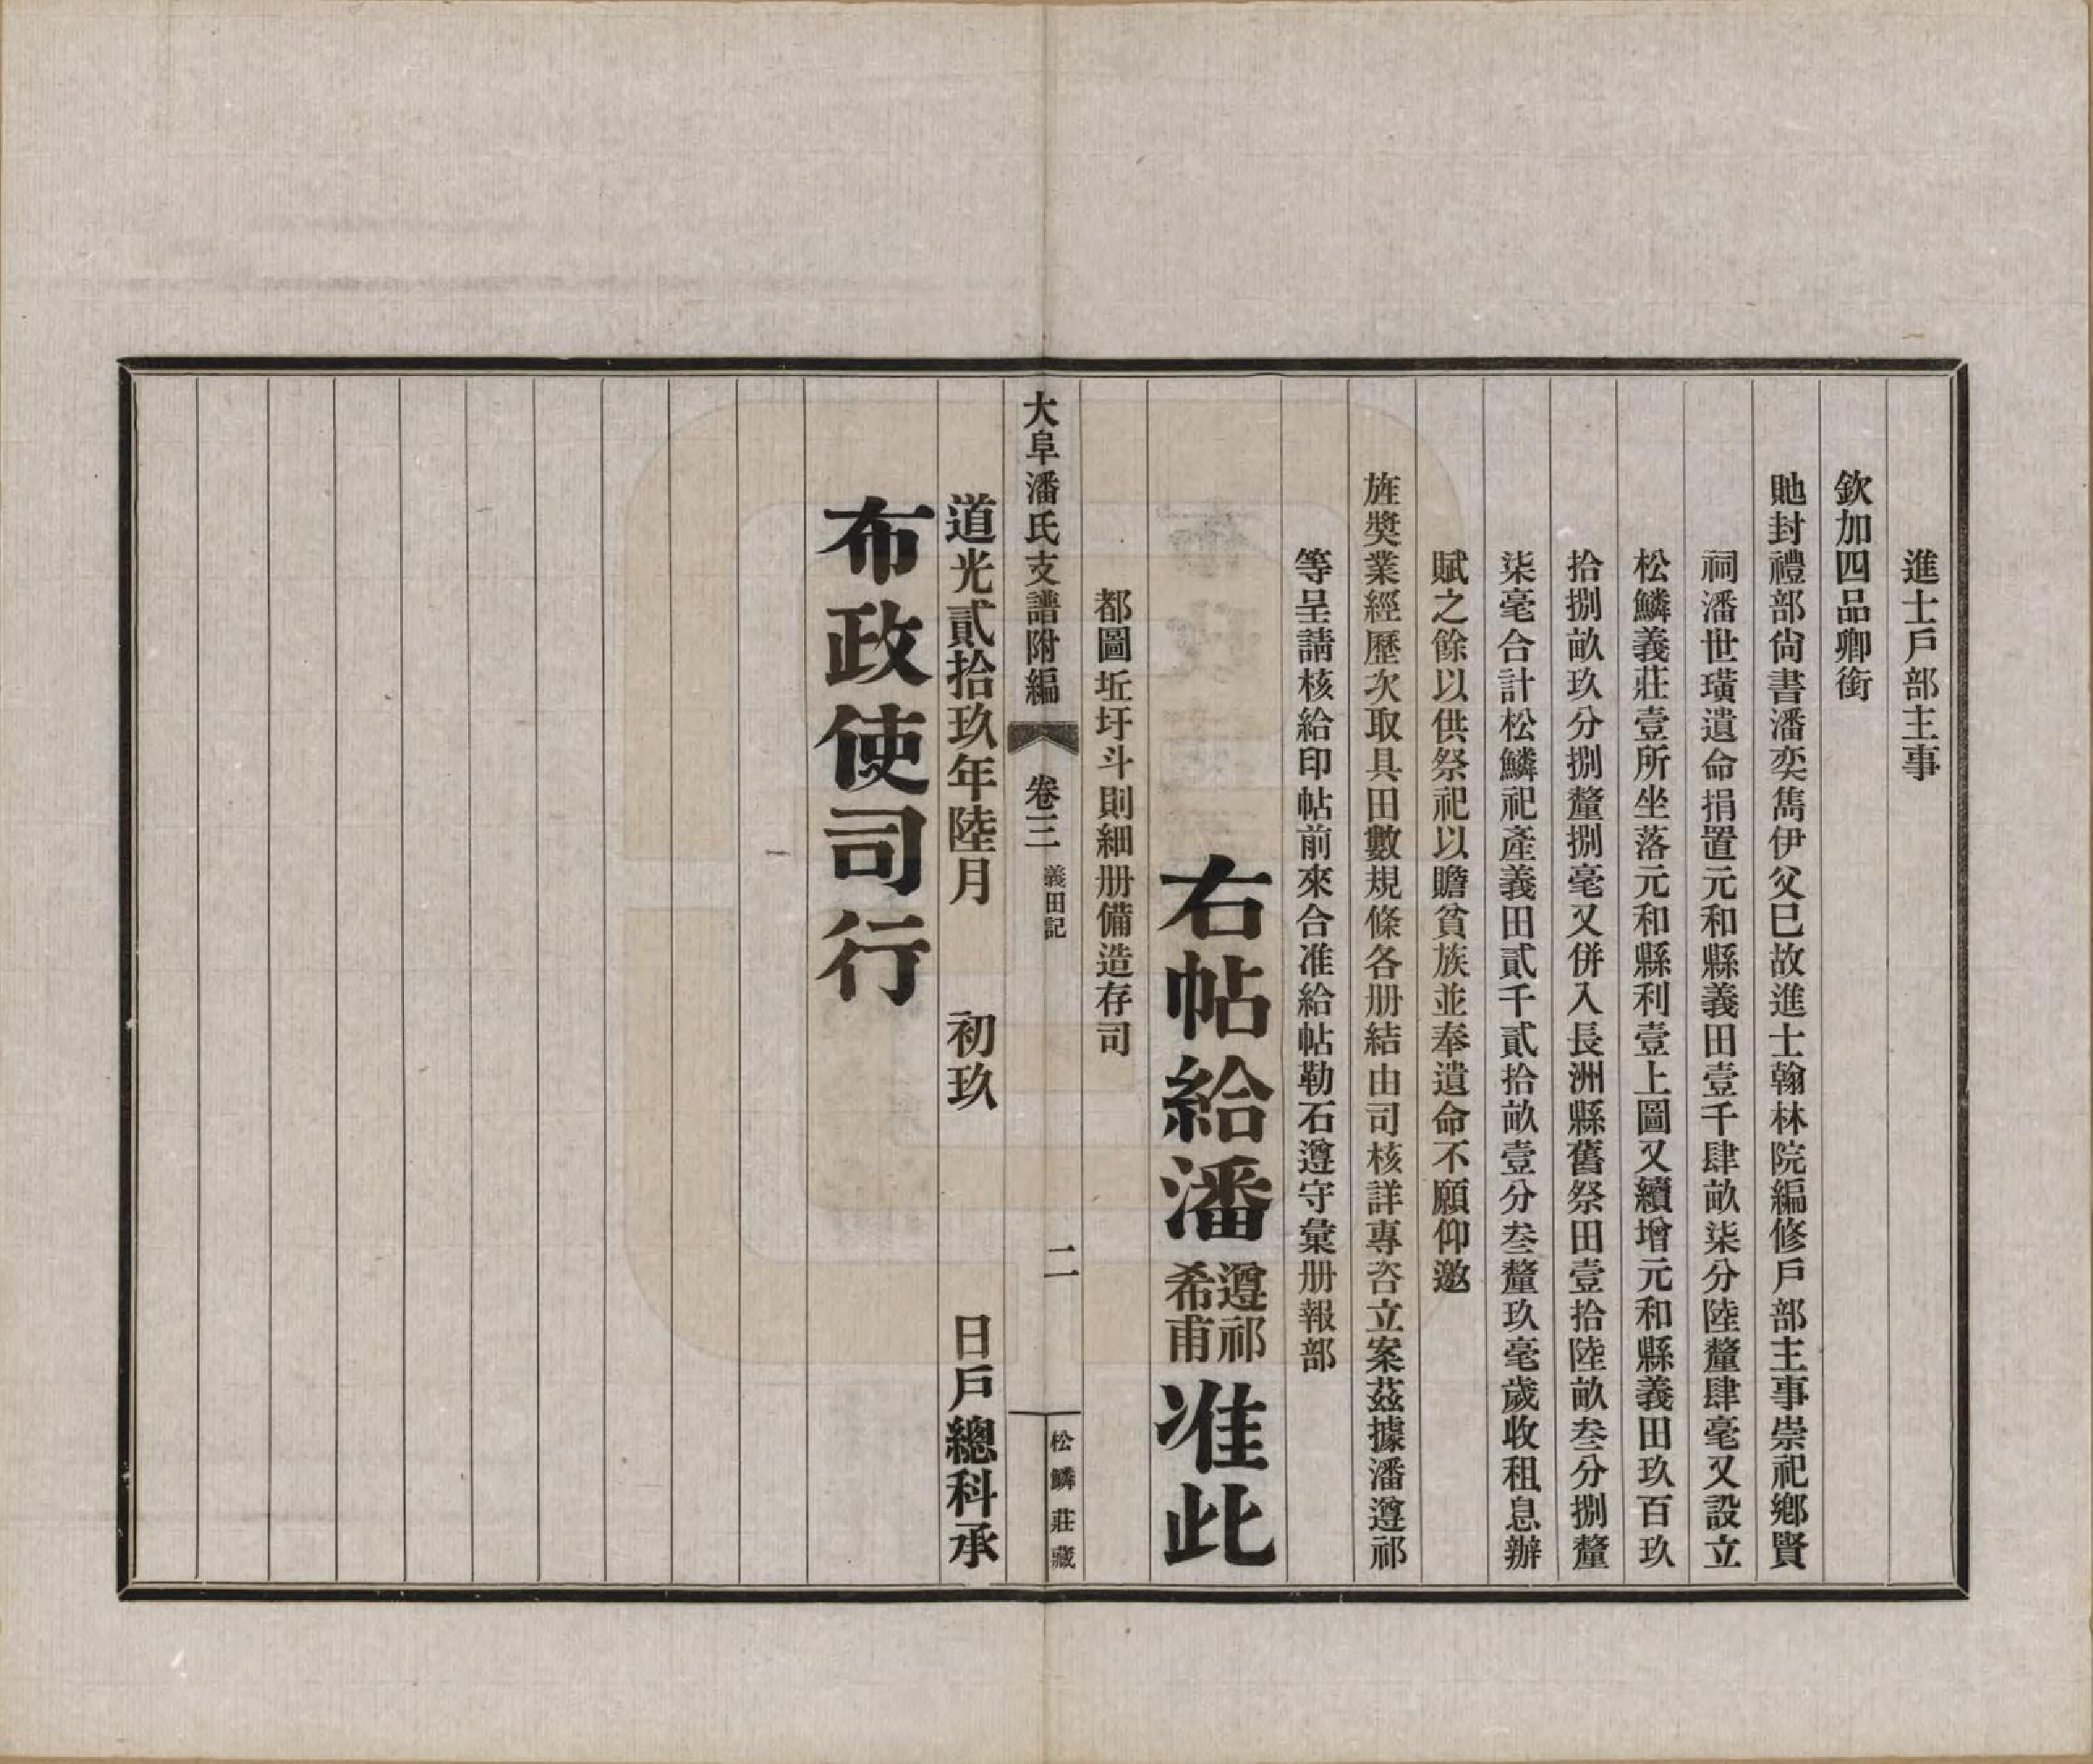 進士戶部主事
欽加四品卿銜
貤封禮部尙書潘奕雋伊父已故進士翰林院編修戶部主事崇祀鄉賢
祠潘世璜遺命捐置元和縣義田壹千肆畝柒分陸釐肆毫又設立
松鱗義莊壹所坐落元和縣利壹上圖又續增元和縣義田玖百玖
拾捌畝玖分捌釐捌毫又併入長洲縣舊祭田壹拾陸畝叁分捌釐
柒毫合計松鱗祀產義田貳千貳拾畝壹分叁釐玖毫歲收租息辦
賦之餘以供祭祀以贍貧族並奉遺命不願仰邀
旌奬業經歷次取具田數規條各册結由司核詳專咨立案茲據潘遵祁
等呈請核給印帖前來合准給帖勒石遵守彙册報部
右帖給潘遵祁希甫准此
都圖坵圩斗則細册備造存司
大阜潘氏支譜附編 卷三 義田記 二 松鱗莊藏
道光貳拾玖年陸月 初玖 日戶總科承
布政使司行